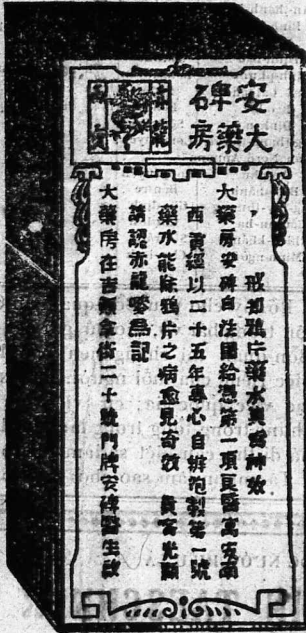 安碑石
大藥房
赤龍
戒却鴉片藥水異常神效
大藥房安碑自法國給憑第一項良醫寓安南
西貢經以二十五年專心自辦炮製第一號
藥水能除鴉片之病愈見奇效 貴客光顧
請認赤龍嘜爲記
大藥房在吉拿街二十號門牌安碑醫生啟